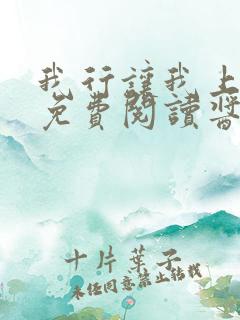 我行讓我上
免費閱讀醬
十片葉子
未经同意禁止转载